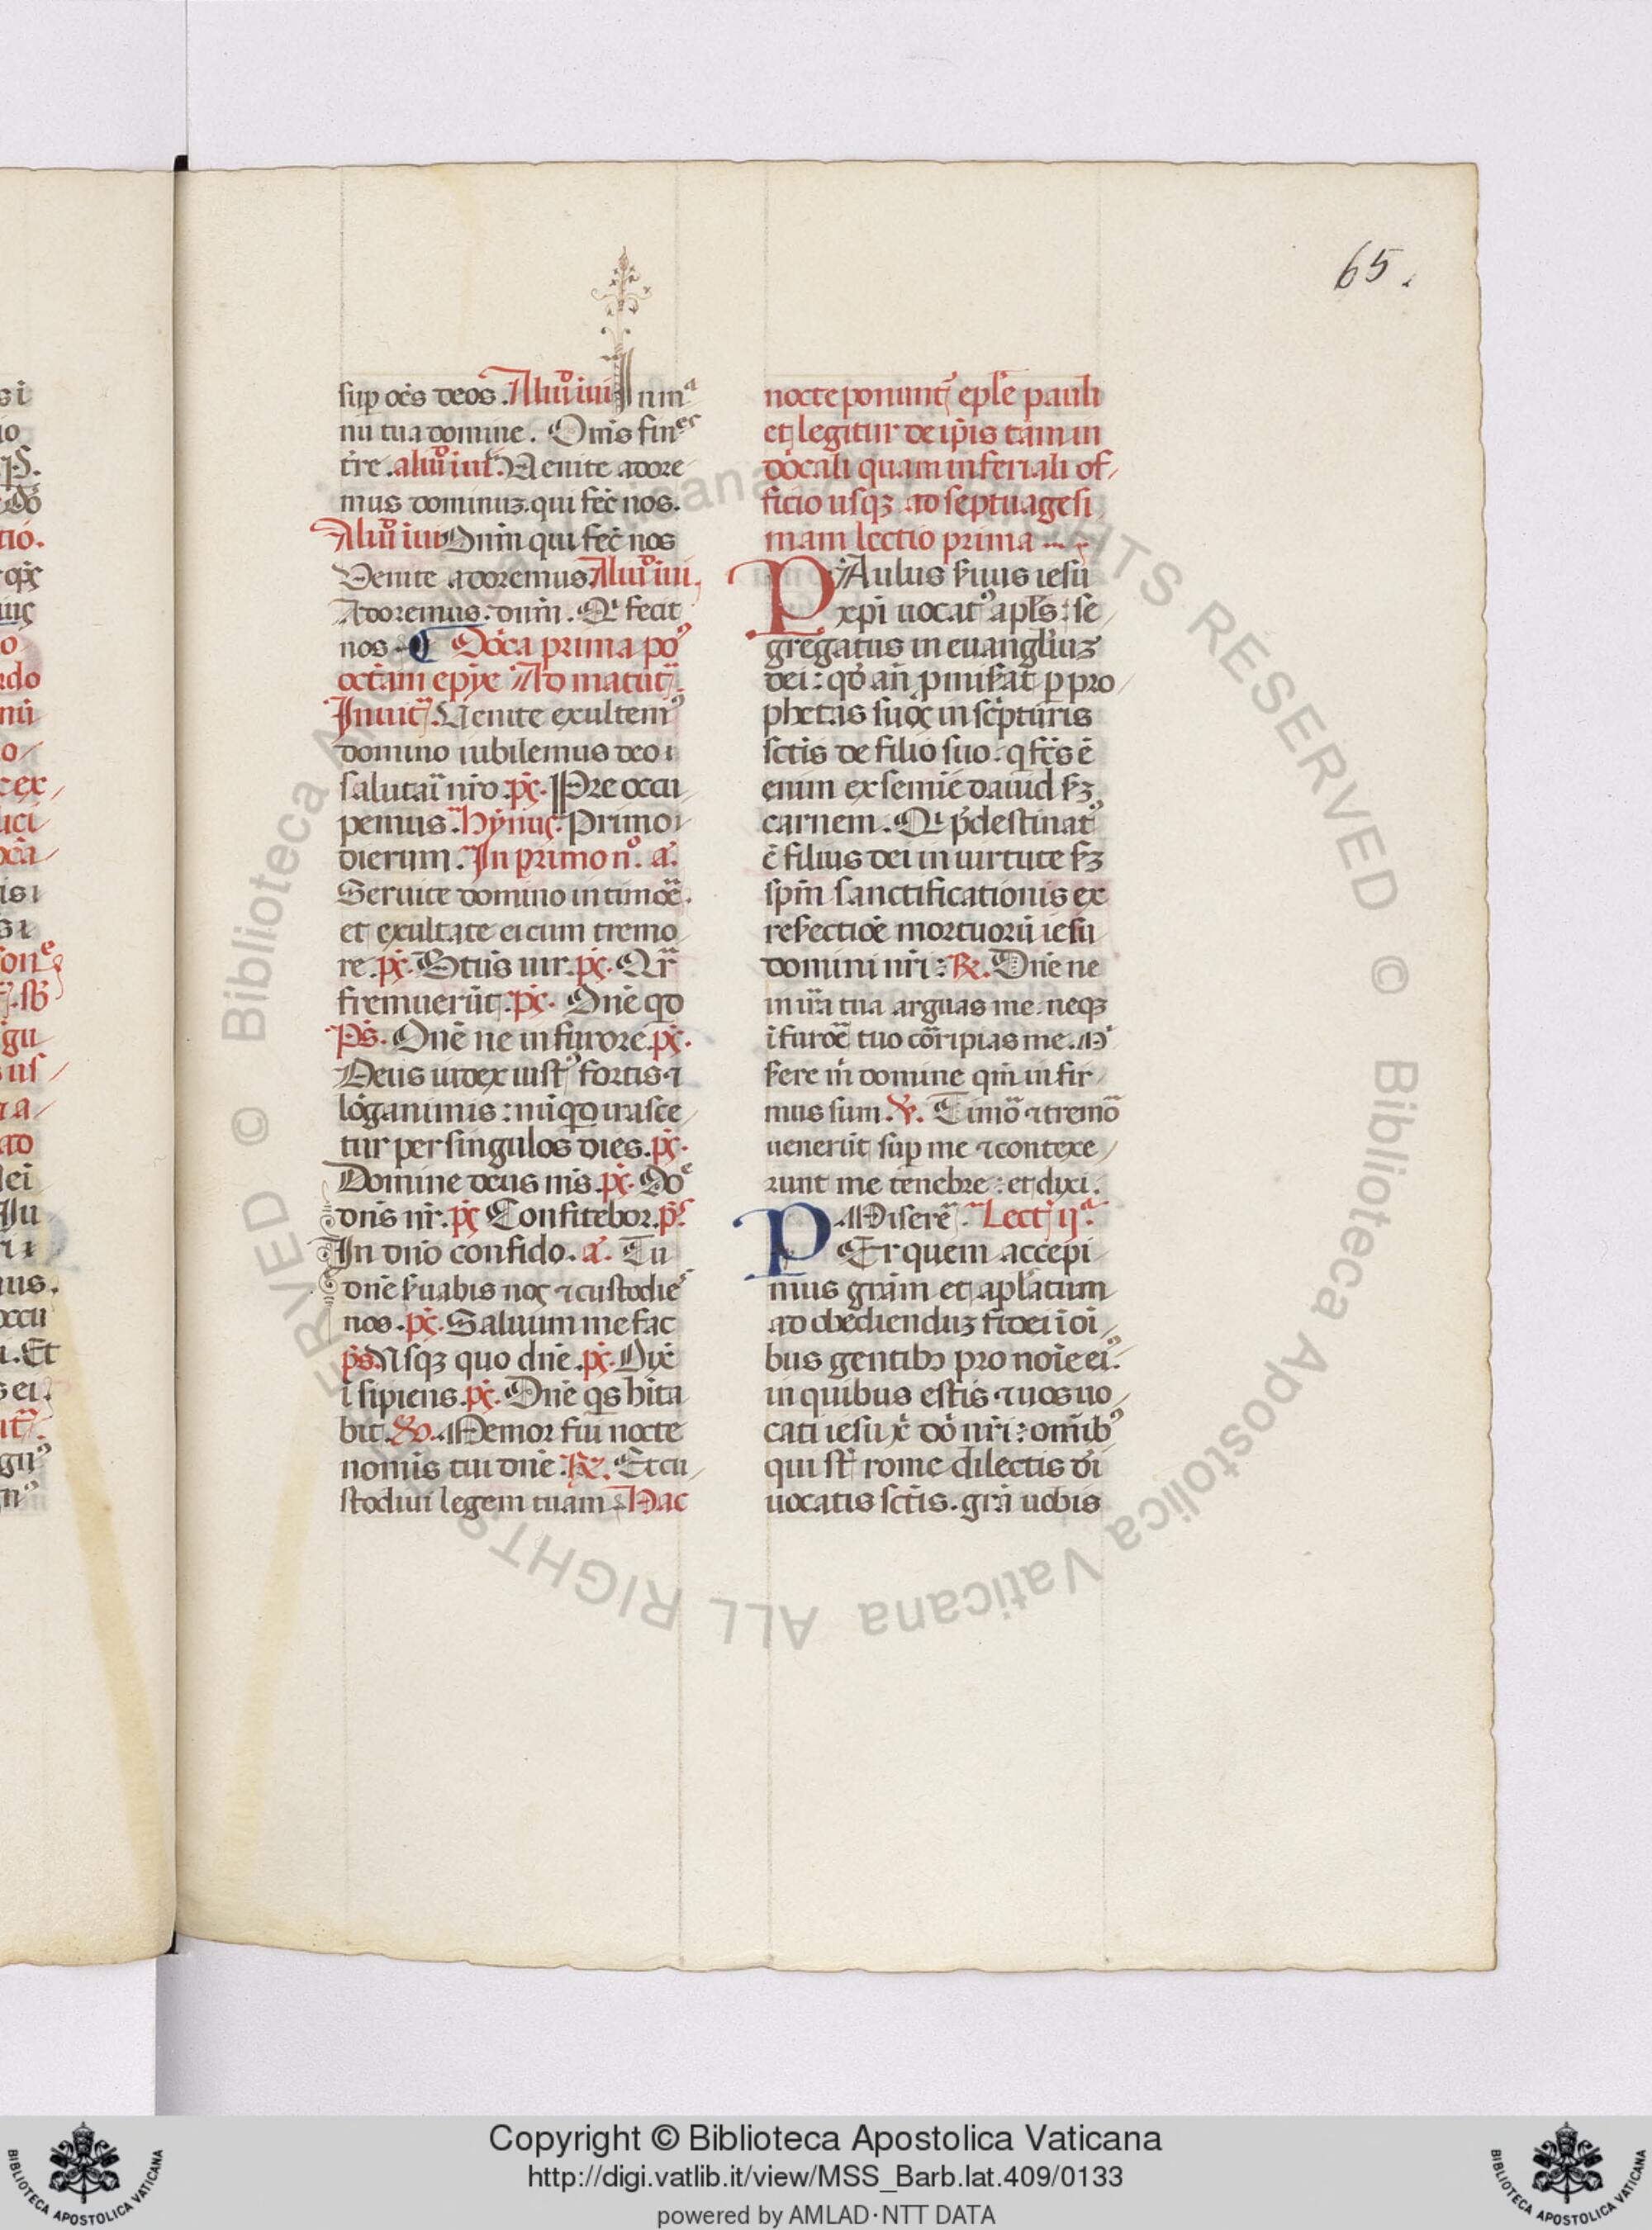 65.
sup oēs deos. Aliud īuit Inmᵃ
nu tua domine. Om̄s finᵉˢ
tr̄re. aliud īuit. Uenite adore
mus dominuꝫ. qui fec̄ nos.
Aliud īuit Dnm̄ qui fec̄ nos
Uenite adoremus. Aliud īuit
Adoremus. dnm̄. Qⁱ fecit
nos. Doīca prima poꝰ
octām epyē Ad matut̄.
Inuit̄. Uenite exultemꝰ
domino iubilemus deo
salutari nr̄o. pꝭ. Preoccu
pemus. hymꝰ. Primo
dierum. In primo n°. a.
Seruite domino in timor̄e.
et exultate ei cum tremo
re. pꝭ. Btūs uir. pꝭ. Qr̄
fremuerūt. pꝭ. Dnē qd
Pꝭ. Dnē ne in furore. pꝭ.
Deus iudex iustꝰ fortis ⁊
lōganimis: nūqd irasce
tur per singulos dies. pꝭ.
Domine deus mś. pꝭ. Doᵉ
dn̄s nr̄. pꝭ Confitebor. pꝭ
In dnō confido. a. Tu
dnē ẜuabis noꝭ ⁊ custodieˢ
nos. pꝭ. Saluum me fac
pꝭ. Usqꝫ quo dnē. pꝭ. Dix̄
īsipiens. pꝭ. Dnē qs hīta
bit. ℣. Memor fui nocte
nomīs tui dnē. ℟. Et cu
stodiui legem tuam. Hac
nocte ponunt̄ eplē pauli
et legitur de ipīs tam in
doīcali quam in feriali of
ficio usqꝫ ad septuagesi
mam lectio prima
PAulus ẜuus iesu
xpi uocatꝰ apl̄s: se
gregatus in euangl̄iuꝫ
dei: qd añ ꝓmiẜat ꝑ pro
phetas suoꝭ in sc̄pturis
sc̄tis de filio suo. q fc̄s ē
enim ex semīe dauid ẜꝫ
carnem. Qⁱ p̄destinatꝰ
ē filius dei in uirtute ẜꝫ
spm̄ sanctificationis ex
reẜectiōe mortuorū iesu
domini nr̄i: ℟. Dnē ne
in ira tua arguas me. neqꝫ
ī furōe tuo cōripias me. Mⁱ
ẜere m̄ domine qm̄ infir
mus sum. ℣. Timō ⁊ tremō
uenerūt sup me ⁊ contexe
runt me tenebre: et dixi.
Miserē. Lect̄ ijᵃ.
PEr quem accepi
mus grām et apl̄atum
ad obediendūꝫ fidei ī oī
bus gentibꝫ pro noīe eiꝰ.
in quibus estis ⁊ uos uo
cati iesu xⁱ dō nr̄i: omībꝰ
qui st̄ rome dilectis dī
uocatis sc̄tis. grā uobis
Copyright © Biblioteca Apostolica Vaticana
http://digi.vatlib.it/view/MSS_Barb.lat.409/0133
powered by AMLAD·NTT DATA